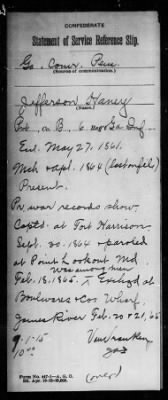 CONFEDERATE
Statement of Service Reference Slip.
Ga. Comr. Pen.
(Source of communication.)
Jefferson Haney
(Name.)
Pvt, Co B, 6 Ga Inf
Enl. May 27, 1861.
Mch & Apl. 1864 (last on file)
Present.
Pr. war records show
Captd at Fort Harrison
Sept. 30. 1864 & paroled
at Point Lookout Md.
was among men
Feb. 18, 1865. x Exchgd at
Boulwares & Cox Wharf,
James River Feb. 20 & 21, 65
9-1-15
(over)
Form No. 447-1—A. G. O.